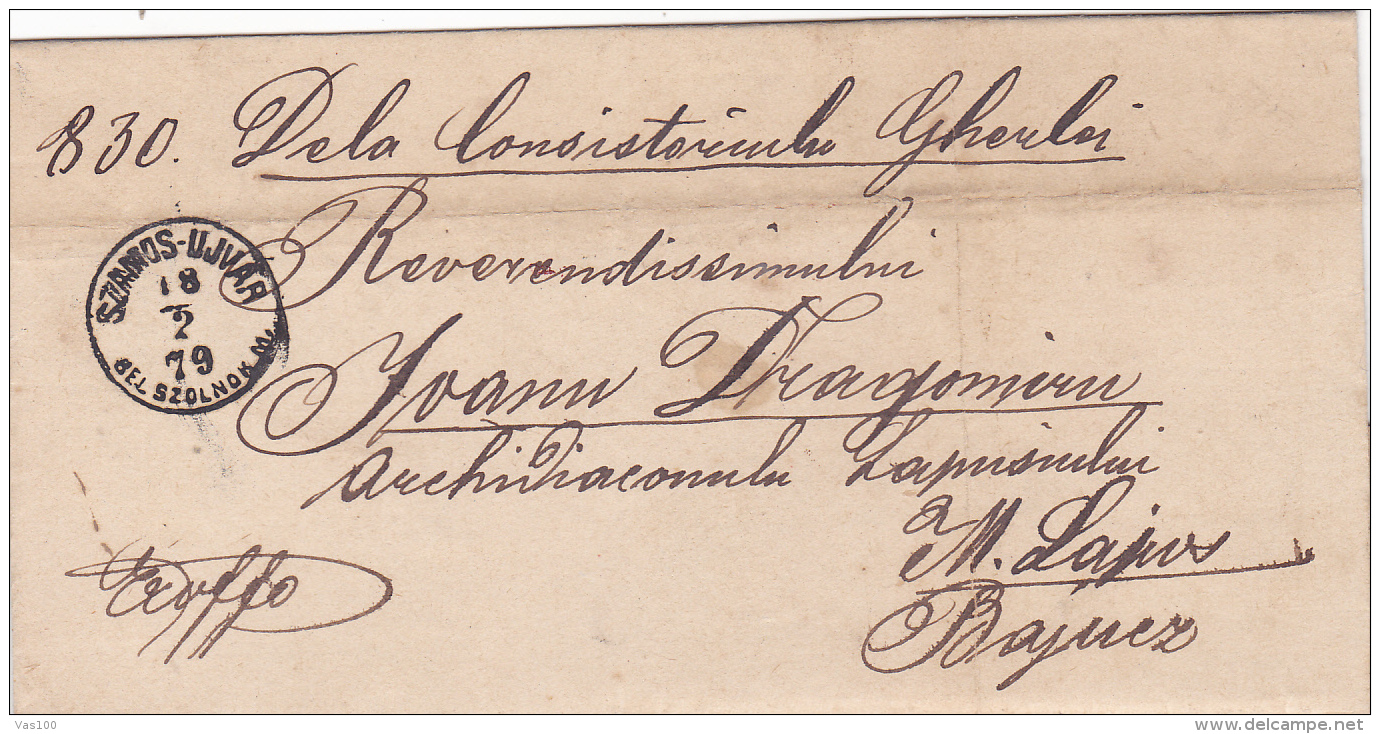 830. Dela Consistoriulu Gherlei
Reverendissimului
SZAMOS-UJVÁR
18
2
79
BEL SZOLNOK M.
Ioanu Dragomiru
Archidiaconulu Lapusiului
M. Lápos
Exoffo
Bajucz
Vas100
www.delcampe.net